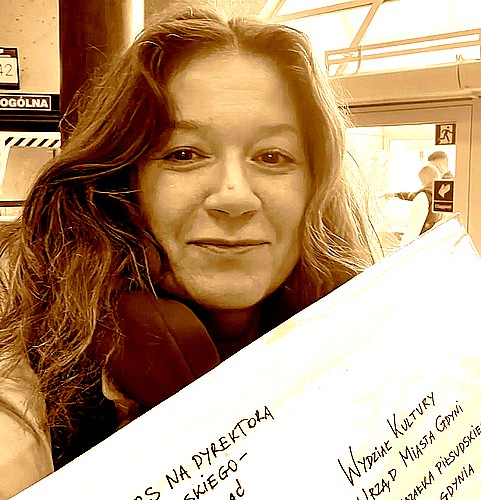 42
OGÓLNA
RS NA DYREKTORA
SKIEGO-
WYDZIAŁ KULTURY
URZĄD MIASTA GDYNI
PIŁSUDSKIE
GDYNIA